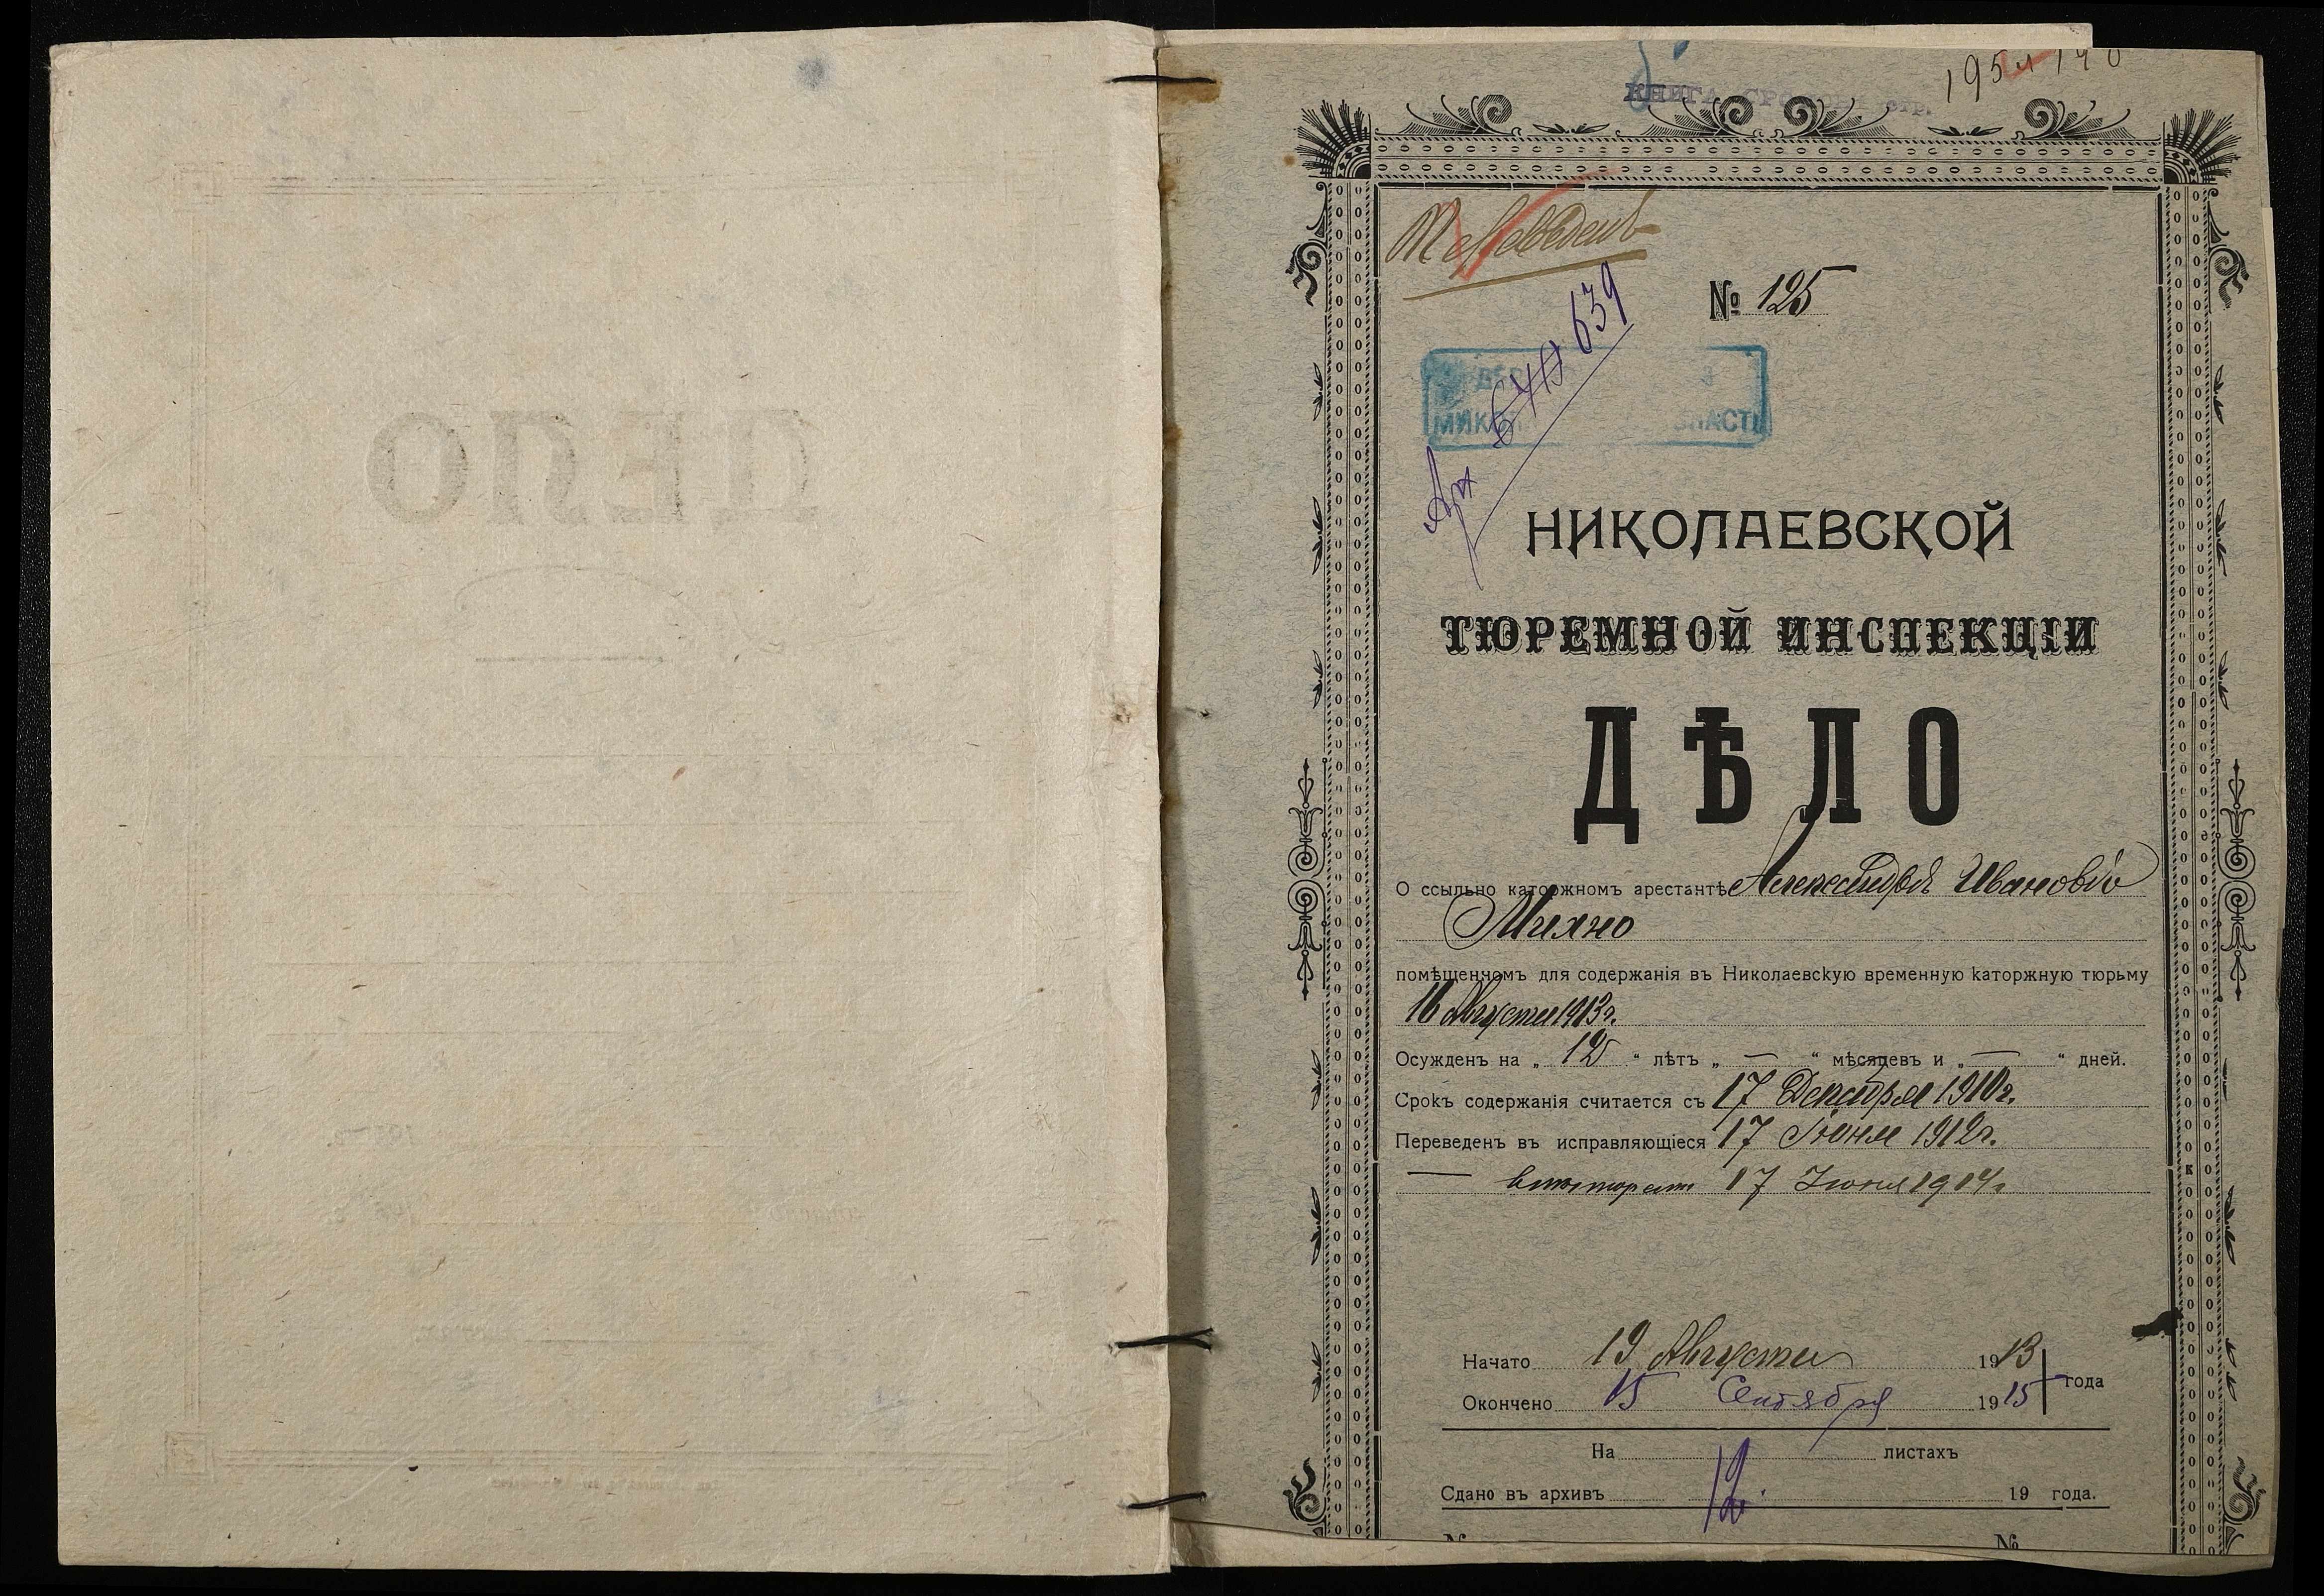 КНИГА СРОКОВЪ стр.
№ 125
Ах 639
НИКОЛАЕВСКОЙ
ТЮРЕМНОЙ ИНСПЕКЦІИ
ДѢЛО
О ссыльно каторжномъ арестантѣ Александрѣ Ивановѣ
Михно
помѣщенномъ для содержанія въ Николаевскую временную каторжную тюрьму
16 Августа 1913 г.
Осужденъ на „ 12 “ лѣтъ „ — “ мѣсяцевъ и „ — “ дней.
Срокъ содержанія считается съ 17 Декабря 1910 г.
Переведенъ въ исправляющіеся 17 Іюня 1912 г.
— 17 Іюня 1914 г.
Начато 19 Августа 1913
года
Окончено 15 Сентября 1915
На 12 листахъ
Сдано въ архивъ 19 года.
№ №
ДЕЛО